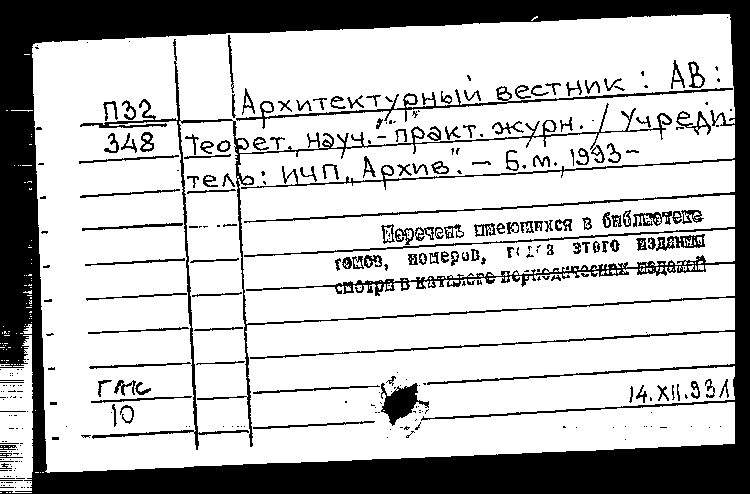 П32
348
Архитектурный вестник : АВ :
Теорет., науч.-практ. журн. / Учреди-
тель: ИЧП „Архив". – Б.м., 1993–
Перечень имеющихся в библиотеке
томов, номеров, года этого издания
смотри в каталоге периодических изданий
10
14.XII.93